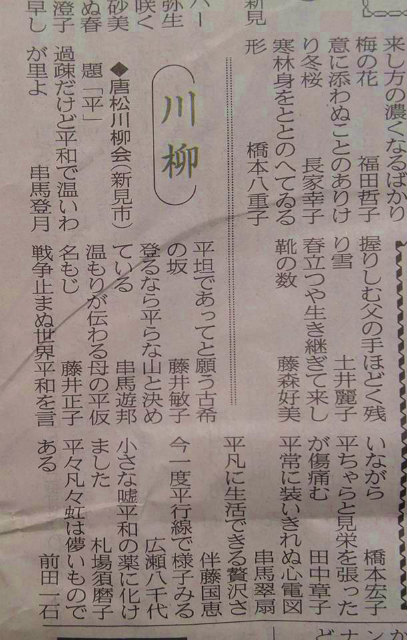 来し方の濃くなるばかり
梅の花　福田哲子
意に添わぬことのありけ
り冬桜　長家幸子
寒林身をととのへてゐる
形　橋本八重子
握りしむ父の手ほどく残
り雪　土井麗子
春立つや生き継ぎて来し
靴の数　藤森好美
川柳
◆唐松川柳会（新見市）
題「平」
過疎だけど平和で温いわ
が里よ　串馬登月
平坦であってと願う古希
の坂　藤井敏子
登るなら平らな山と決め
ている　串馬遊邦
温もりが伝わる母の平仮
名もじ　藤井正子
戦争止まぬ世界平和を言
いながら　橋本宏子
平ちゃらと見栄を張った
が傷痛む　田中章子
平常に装いきれぬ心電図
串馬翠扇
平凡に生活できる贅沢さ
伴藤国恵
今一度平行線で様子みる
広瀬八千代
小さな嘘平和の薬に化け
ました　札場須磨子
平々凡々虹は儚いもので
ある　前田一石
新見
弥生
咲く
砂美
ぬ春
澄子
早し